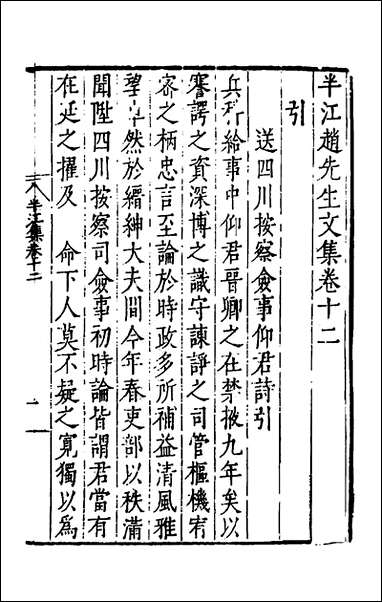 半江趙先生文集卷十二
引
送四川按察僉事仰君詩引
兵科給事中仰君晉卿之在禁掖九年矣以
謇諤之資深博之識守諫諍之司管樞機宥
密之柄忠言至論於時政多所補益清風雅
望卓然於縉紳大夫間今年春吏部以秩滿
聞陞四川按察司僉事初時論皆謂君當有
在延之擢及 命下人莫不疑之寛獨以爲
半江集卷十二
一